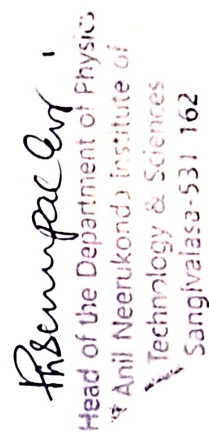 Head of the Department of Physics
Anil Neerukonda Institute of
Technology & Sciences
Sangivalasa-531 162